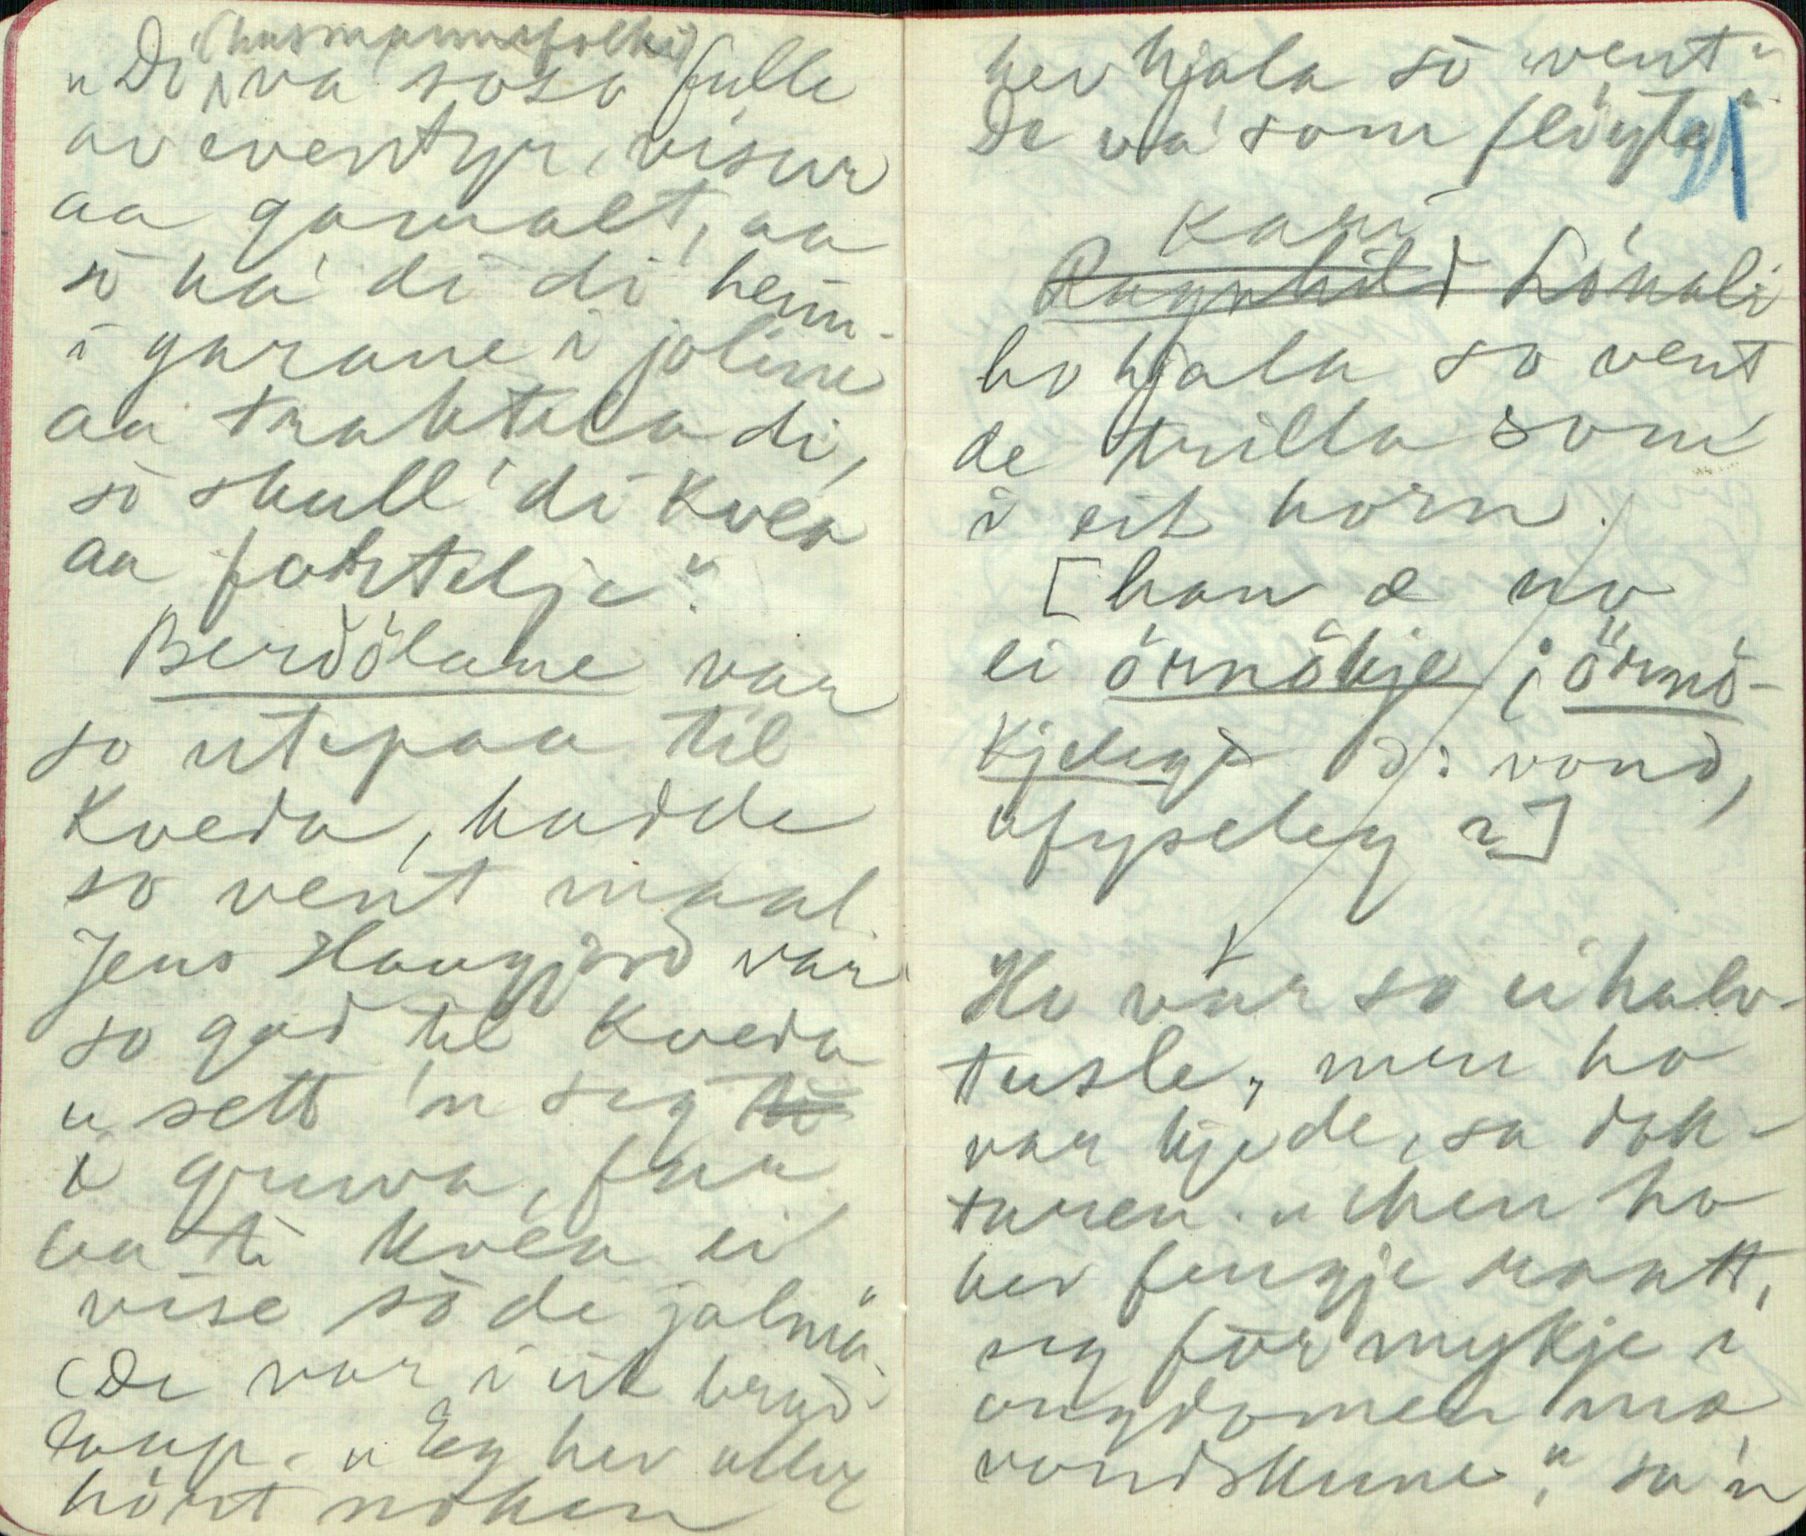 (husmannsfolki)
"Di va' soso fulle
av eventyr, visur
aa gamalt, aa
sò ha' di di heim
i garane i joline
aa traktera di,
sò skull' di kvea
aa fortelja".
Berdölane var
so utepaa til
Kveda, hadde
so vent maal
Jens Haugjord var
so god til Kveda
"sett 'n seg
i gruva, faar
aa te kvea ei
vise sò de jalma"
(De var i eit bryd-
laup. "Eg hev aller
hört noken
hev hjala sò vent"
De va' som flöyta"
91
Kari
Ragnhild Lönali
ho hjala so vent
de trilla som
i eit horn.
[han æ no
ei örnökje; örnö-
kjeleg ɔ: vond,
ufyseleg ?]
Ho var so ei halv-
tusle, men ho
var kjede, sa dok-
turen. "Men ho
hev fengje raatt,
seg for mykje i
ungdomen ma
vondskune", sa 'n